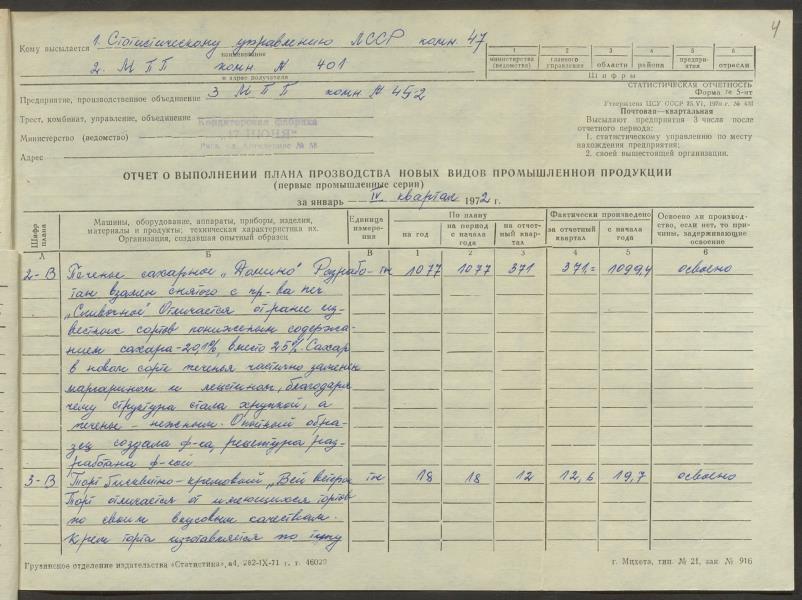 4
Кому высылается 1. Статистическому управлению ЛССР комн. 47
наименование
2. М П П комн № 401
и адрес получателя
3 М П П комн № 452
1 2 3 4 5 6
министерства (ведомства) главного управления области района предприятия отрасли
Шифры
СТАТИСТИЧЕСКАЯ ОТЧЕТНОСТЬ
Форма № 5-нт
Утверждена ЦСУ СССР
Почтовая—квартальная
Высылают предприятия 3 числа после
отчетного периода:
1. статистическому управлению по месту
нахождения предприятия;
2. своей вышестоящей организации.
Предприятие, производственное объединение
Трест, комбинат, управление, объединение
Кондитерская фабрика
"17 ИЮНЯ"
Министерство (ведомство)
Адрес
ОТЧЕТ О ВЫПОЛНЕНИИ ПЛАНА ПРОЗВОДСТВА НОВЫХ ВИДОВ ПРОМЫШЛЕННОЙ ПРОДУКЦИИ
(первые промышленные серии)
за январь — IV квартал 1972 г.
Шифр плана
Машины, оборудование, аппараты, приборы, изделия,
материалы и продукты; техническая характеристика их.
Организация, создавшая опытный образец
Единица измерения
По плану
на год на период с начала года на отчетный квартал
Фактически произведено
за отчетный квартал с начала года
Освоено ли производство, если нет, то причины, задерживающие освоение
А Б В 1 2 3 4 5 6
2-В Печенье сахарное „Домино" Разрабо- тн 1077 1077 371 371.= 1099,4 освоено
тан взамен снятого с пр-ва печ
„Сливочное" Отличается от ранее из-
вестных сортов пониженым содержа-
нием сахара-20,1%, вместо 25%. Сахар
в новом сорте печенья частично заменен
маргарином и лецитином, благодаря
чему структура стала хрупкой, а
печенье - нежным. Опытный обра-
зец создала ф-ка, рецептура раз-
работана ф-кой
3-В Торт бисквитно-кремовый „Вей ветерок тн 18 18 12 12,6 19,7 освоено
Торт отличается от имеющихся тортов
по своим вкусовым качествам.
Крем торта изготовляется по типу
Грузинское отделение издательства «Статистика», а4, 282-IX-71 г. т. 46020
г. Мцхета, тип. № 21, зак № 916